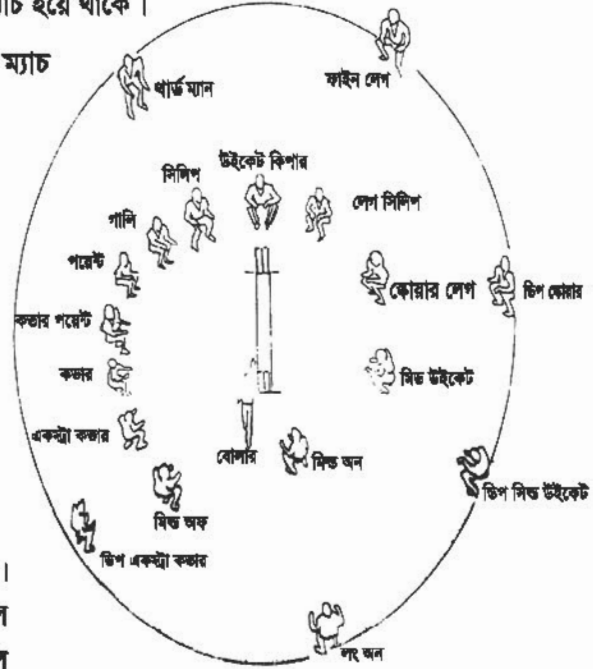 চ হয়ে থাকে।
ম্যাচ
ফাইন লেগ
থার্ড ম্যান
উইকেট কিপার
সিলিপ
লেগ সিলিপ
গালি
পয়েন্ট
স্কোয়ার লেগ
ডিপ স্কোয়ার
কভার পয়েন্ট
কভার
মিড উইকেট
একস্ট্রা কভার
বোলার
মিল্ড অন
ডিপ মিল্ড উইকেট
মিল্ড অফ
ডিপ একস্ট্রা কভার
।
লং অন